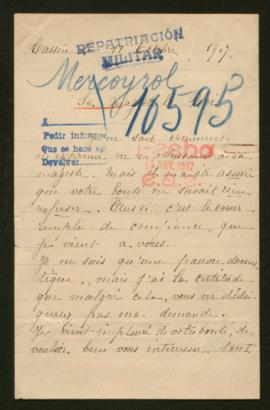 REPATRIACIÓN
MILITAR
Octobre, 1917
Mercoyrol
10595
A
Pedir informe
Que se hace ap
Devolver
NOV. 1917
majesté. Mais on m'a
que votre bonté ne savait rien
refuser. Aussi c'est le cœur
rempli de confiance, que
je vient a vous.
Je ne suis qu'une pauvre domes
tique, mais j'ai la certitude
que malgré cela, vous ne déda
gnerez pas ma demande.
Je vient implorer de votre bonté, de
vouloir, bien vous interesser tout